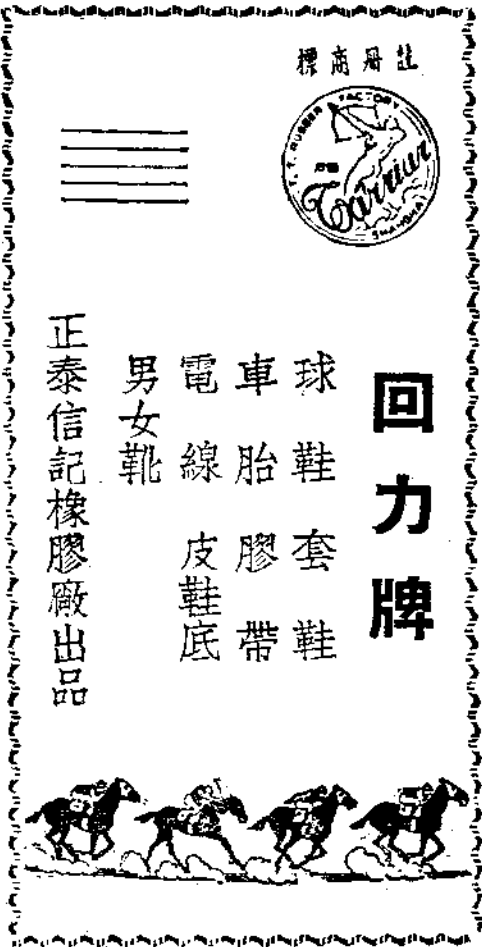 註册商標
RUBBER FACTORY
Warrior
SHANGHAI
回力牌
球鞋 套鞋
車胎 膠帶
電線 皮鞋底
男女靴
正泰信記橡膠廠出品